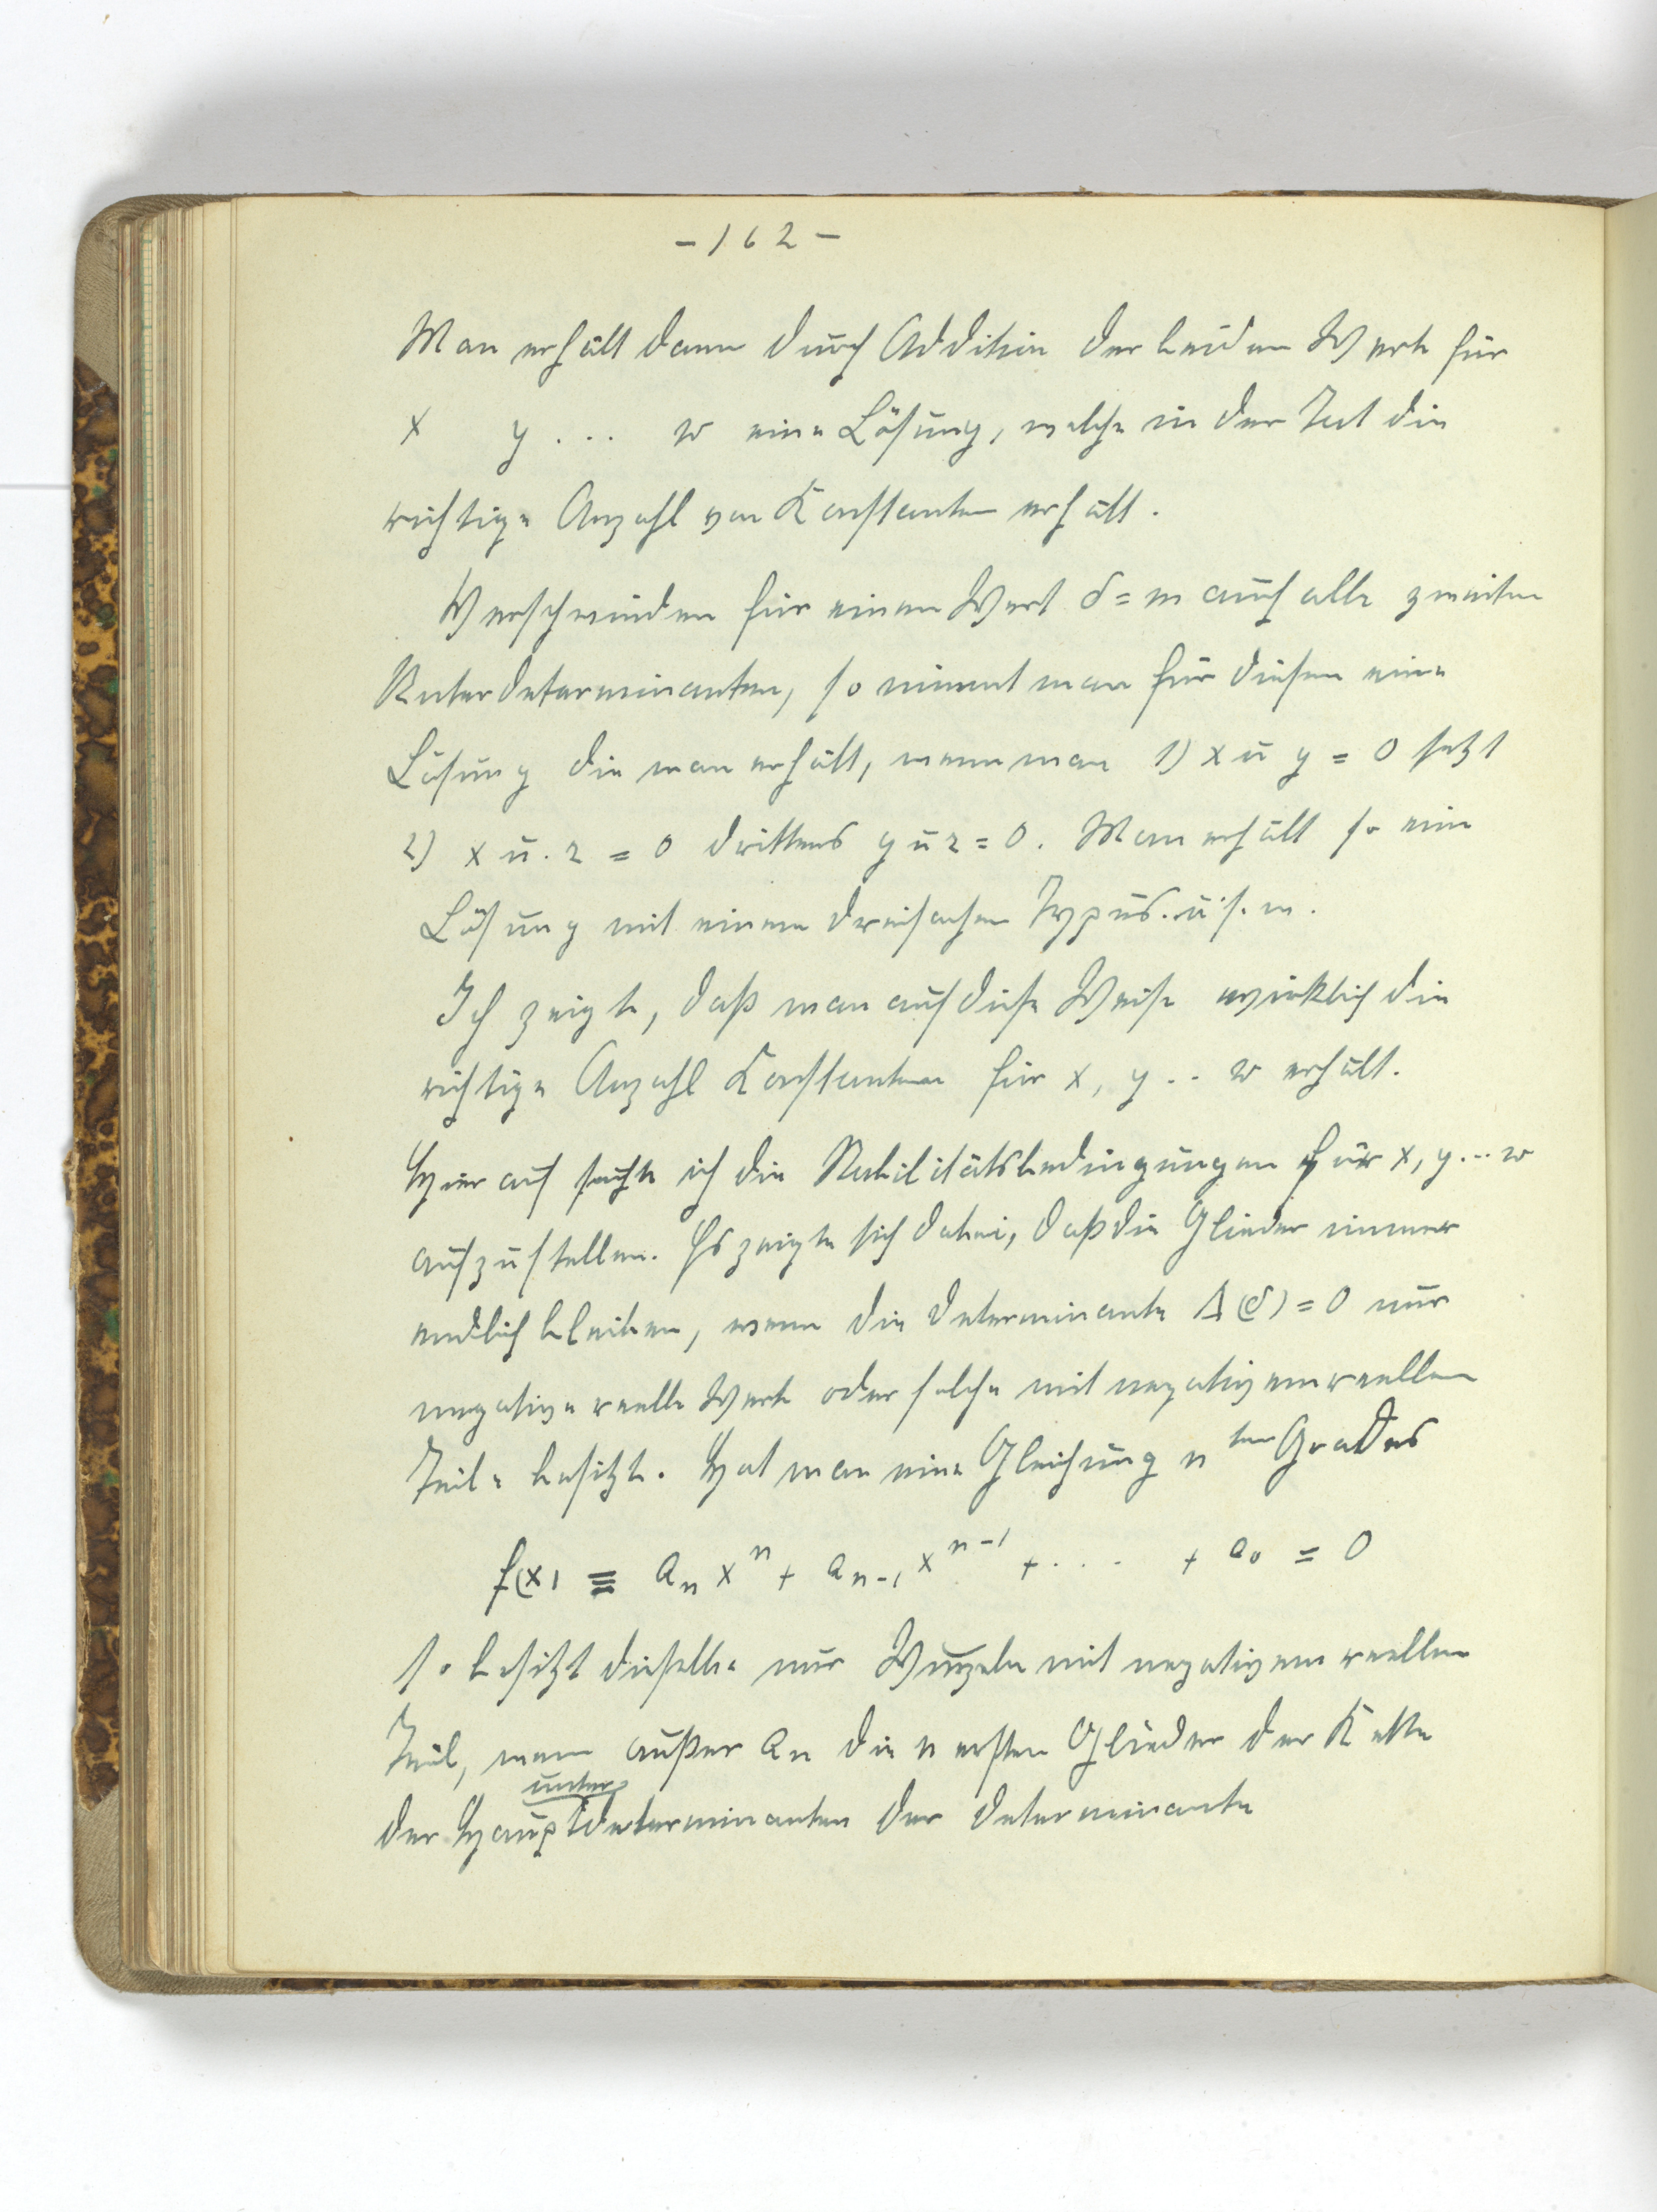 - 162 -
Man erhält dann durch Addition der beiden Werte für
x y ... w eine Lösung, welche in der Tat die
richtige Anzahl von Konstanten erhält.
Verschwinden für einen Wert δ = m auch alle zweiten
Unterdeterminanten, so nimmt man für diesen eine
Lösung die man erhält, wenn man 1) x u y = 0 setzt
2) x u. z = 0 drittens y u z = 0. Man erhält so eine
Lösung mit einem dreifachen Typus. u. s. w.
Ich zeigte, daß man auf diese Weise wirklich die
richtige Anzahl Konstanten für x, y .. w erhält.
Hierauf suchte ich die Stabilitätsbedingungen für x, y ... w
aufzustellen. Es zeigte sich dabei, daß die Glieder immer
endlich bleiben, wenn die Determinante Δ(δ) = 0 nur
negative reelle Werte oder solche mit negativem reellen
Teile besitzt. Hat man eine Gleichung n ten Grades
f(x) ≡ aₙ xⁿ + aₙ₋₁ xⁿ⁻¹ + ... + a₀ = 0
so besitzt dieselbe nur Wurzeln mit negativem reellen
Teil, wenn außer aₙ die n ersten Glieder der Kette
der Hauptunterdeterminanten der Determinante